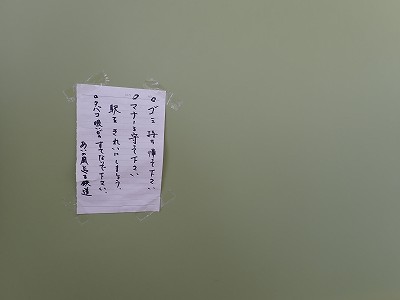 ○ゴミ持ち帰って下さい
○マナーを守って下さい
駅をきれいにしましょう。
○タバコ吸いがらすてないで下さい。
あいの風とやま鉄道